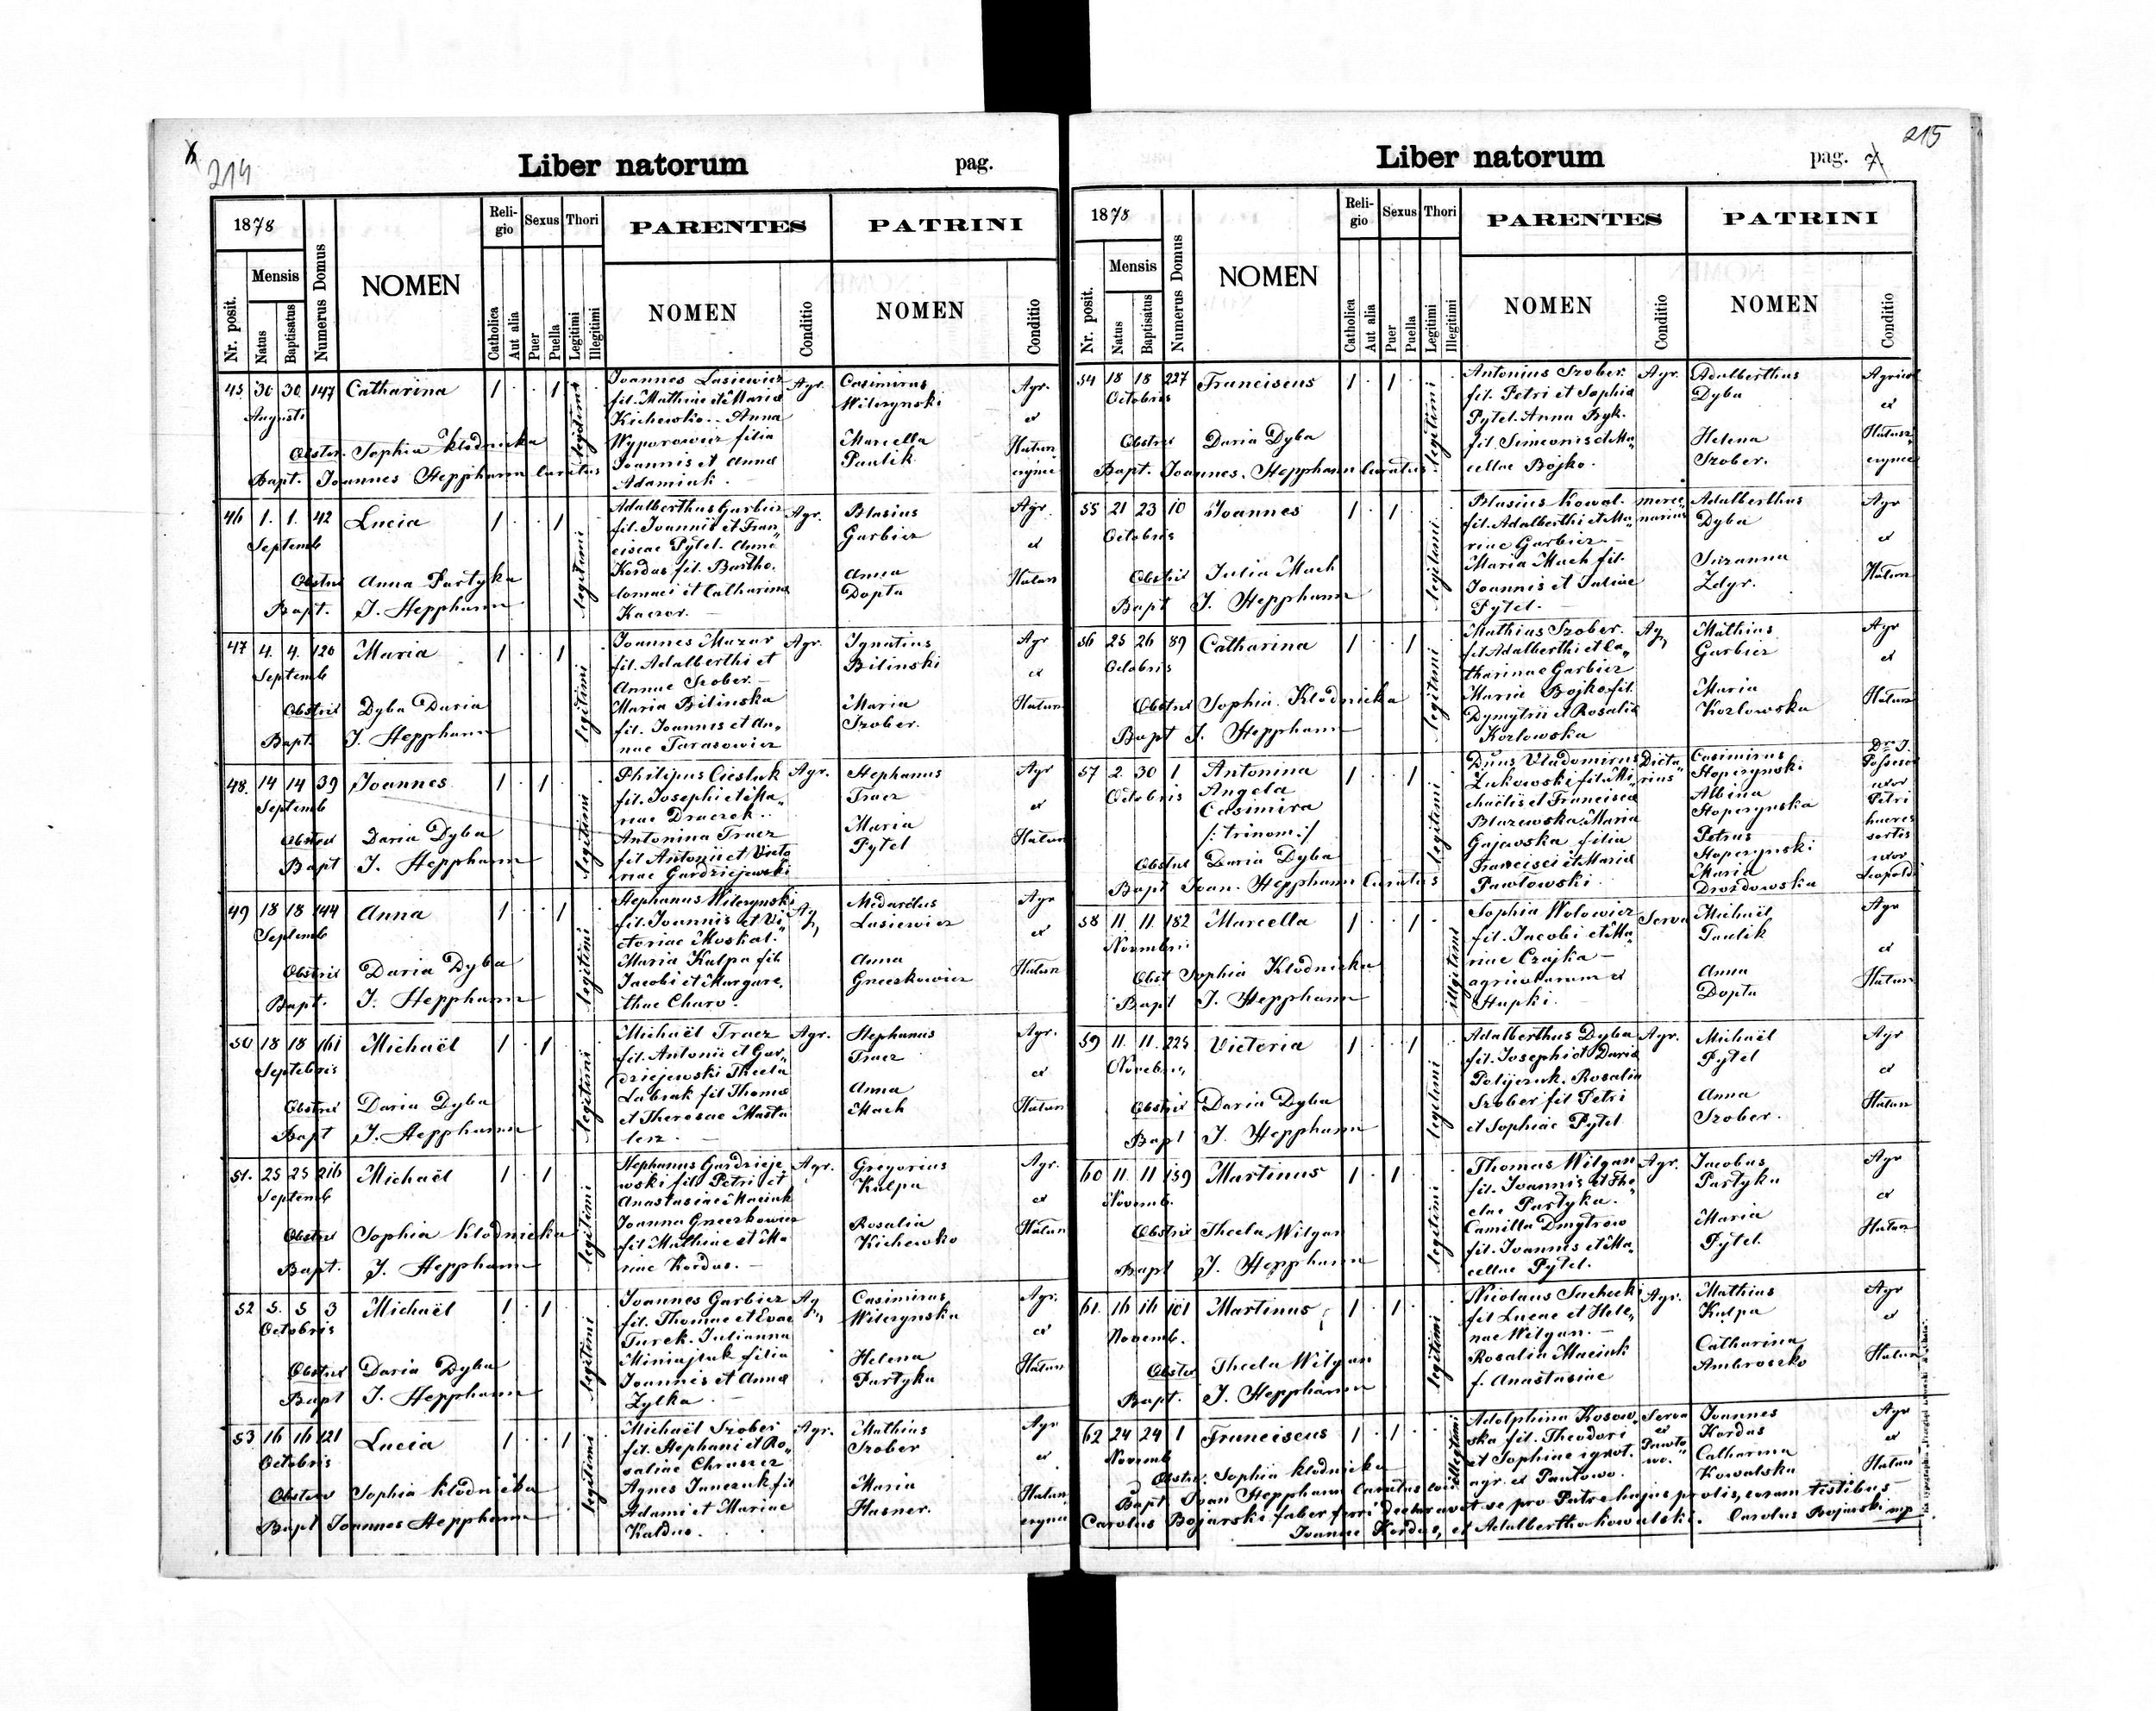 214
Liber natorum
pag.
1878
Numerus Domus
NOMEN
Reli-
gio
Sexus
Thori
PARENTES
PATRINI
Nr. posit.
Mensis
Natus
Baptisatus
Catholica
Aut alia
Puer
Puella
Legitimi
Illegitimi
NOMEN
Conditio
NOMEN
Conditio
45. 30 30. 147 Catharina 1 1 legitimi
Augusti
Obster. Sophia Kłodnicka
Bapt. Joannes Hepphann Curatus
Joannes Lasiewicz Agr.
fil. Mathiae et Maria
Kichewko. Anna
filia
Joannis et Anna
Adamiuk.
Casimirus
Wilczynski
Marcella
Paulik
Agr.
et
46 1. 1. 42 Lucia 1 1 legitimi
Septemb
Anna Partyka
Bapt. J. Hepphann
Adalberthus Garbicz Agr.
fil. Joannis et Fran„
ciscae Pytel. Anna
Kordas fil. Bartho.
lomaei et Catharina
Kaczor.
Blasius
Garbicz
Anna
Dopta
Agr.
et
47 4. 4. 120 Maria 1 1 legitimi
Septemb
Dyba Daria
Bapt. J. Hepphann
Joannes Mazur Agr.
fil. Adalberthi et
Annae Szober.
Maria Bilinska
fil. Joannis et An„
nae Tarasowicz
Ignatius
Bilinski
Maria
Szober.
Agr
et
48. 14 14 39 Joannes 1 1 legitimi
Septemb
Daria Dyba
Bapt J. Hepphann
Philipus Cieslak Agr.
fil. Josephi et Ma„
riae Draczek.
Antonina Tracz
fil Antonii et Victo
riae Gardziejewski
Stephanus
Tracz
Maria
Pytel
Agr
et
49 18 18 144 Anna 1 1 legitimi
Septemb
Daria Dyba
Bapt. J. Hepphann
Stephanus Wilczynski
fil. Joannis et Vi„
ctoriae Moskal.
Maria Kulpa fil
Jacobi et Margare,
thae Charo.
Medardus
Lasiewicz
Anna
Gneczkowicz
Agr
et
50 18 18 161 Michaël 1 1 legitimi
Septebris
Daria Dyba
Bapt J. Hepphann
Michaël Tracz Agr.
fil. Antonii et Gar„
dziejewski Thecla
Labrak fil Thoma
et Theresae Masta
lerz.
Stephanus
Tracz
Anna
Mach
Agr.
et
51. 25 25 216 Michaël 1 1 legitimi
Septemb
Sophia Kłodnicka
Bapt. J. Hepphann
Stephanus Gardzieje Agr.
wski fil. Petri et
Anastasiae Maciuk
Joanna Gneczkowicz
fil Mathiae et Ma
riae Kordas.
Gregorius
Kulpa
Rosalia
Kichewko
Agr.
et
52 5. 5 3 Michaël 1 1 legitimi
Octobris
Daria Dyba
Bapt J. Hepphann
Joannes Garbicz
fil. Thomae et Evae
Turek. Julianna
filia
Joannis et Anna
Zylka
Casimirus
Wilczynska
Helena
Partyka
Agr.
et
53 16 16 121 Lucia 1 1 legitimi
Octobris
Sophia Kłodnicka
Bapt Joannes Hepphann
Michaël Szober Agr.
fil. Stephani et Ro„
saliae Chruszcz
Agnes Janczuk fil
Adami et Mariae
Kaldus.
Mathius
Szober
Maria
Hasner.
Agr
et
215
Liber natorum
pag. 7
1878
Numerus Domus
NOMEN
Reli-
gio
Sexus
Thori
PARENTES
PATRINI
Nr. posit.
Mensis
Natus
Baptisatus
Catholica
Aut alia
Puer
Puella
Legitimi
Illegitimi
NOMEN
Conditio
NOMEN
Conditio
54 18 18 227 Franciscus 1 1 legitimi
Octobris
Daria Dyba
Bapt. Joannes. Hepphann Curatus
Antonius Szober. Agr.
fil. Petri et Sophia
Pytel. Anna Byk.
fil Simeonis et Ma„
cellae Bojko.
Adalberthus
Dyba
Helena
Szober.
et
55 21 23 10 Joannes 1 1 legitimi
Octobris
Julia Mach
Bapt J. Hepphann
Blasius Kowal. merce„
fil. Adalberthi et Ma„ narius
riae Garbicz.
Maria Mach fil.
Joannis et Juliae
Pytel.
Adalberthus
Dyba
Suzanna
Zdyr.
Agr
et
56 25 26 89 Catharina 1 1 legitimi
Octobris
Sophia Kłodnicka
Bapt J. Hepphann
Mathius Szober.
fil Adalberthi et Ca„
tharinae Garbicz
Maria Bojko fil.
Dymytrii et Rosalia
Kozlowska
Mathius
Garbicz
Maria
Kozlowska
Agr
et
57 2. 30 1 Antonina 1 1 legitimi
Octobris Angela
Casimira
/: trinom :/
Daria Dyba
Bapt Joan. Hepphann Curatus
Dnus Vladomirus Dieta„
Zukowski fil. Mi„ rius
chaëlis et Francisca
Blazewska. Maria
Gajewska filia
Francisci et Maria
Pawłowski.
Casimirus
Stopczynski
Albina
Stopczynska
Petrus
Stopczynski
Maria
Drozdowska
uxor
Petri
haeres
sortis
uxor
Leopoldi
58 11. 11. 182 Marcella 1 1 illigitimi
Novembri
Obst Sophia Kłodnicka
Bapt J. Hepphann
Sophia Wołowicz Serva
fil. Jacobi et Ma„
riae Czajka
agricolarum et
Hupki.
Michaël
Paulik
Anna
Dopta
Agr
et
59 11. 11. 225 Victoria 1 1 legitimi
Daria Dyba
Bapt J. Hepphann
Adalberthus Dyba Agr.
fil. Josephi et Daria
Rosalia
Szober fil Petri
et Sophiae Pytel
Michaël
Pytel
Anna
Szober.
Agr
et
60 11. 11 159 Martinus 1 1 legitimi
Novemb.
Thecla Wilgan
Bapt J. Hepphann
Thomas Wilgan Agr.
fil. Joannis et The„
clae Partyka.
Camilla Dmytrow
fil. Joannis et Ma„
cellae Pytel.
Jacobus
Partyka
Maria
Pytel.
Agr
et
61. 16 16 101 Martinus 1 1 legitimi
Novemb.
Thecla Wilgan
Bapt. J. Hepphann
Nicolaus Sachecki Agr.
fil Lucae et Hele„
nae Wilgan.
Rosalia Maciuk
f. Anastasiae
Mathias
Kulpa
Catharina
Ambroszko
Agr
et
62 24 24 1 Franciscus 1 1 illegitimi
Novemb
Sophia Kłodnicka
Adolphina Kosow„ Serva
ska fil. Theodori et
et Sophiae ignot. Pawło„
agr. ex Pawłowo. wo.
Joannes
Kordas
Catharina
Kowalska
Agr
et
Bapt Joan Hepphann Curatus loci
Carolus Bojarski faber ferri declaravit se pro Patre hujus prolis, coram testibus
Joanne Kordas, et Adalbertho Kowalski. Carolus Bojarski mp